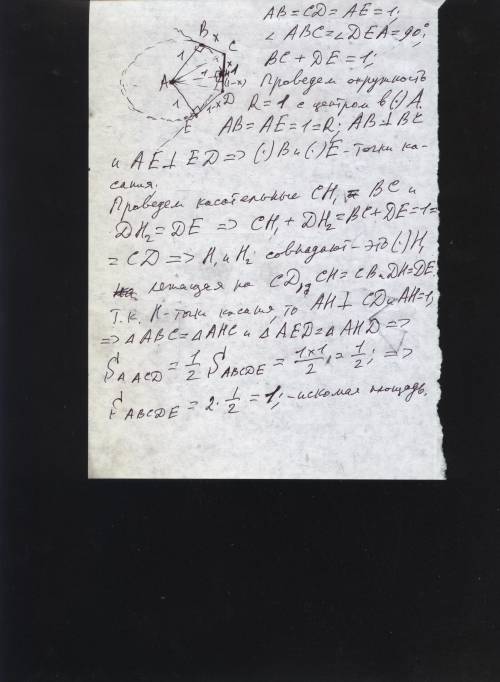 AB=CD=AE=1;
∠ABC=∠DEA=90°;
BC+DE=1;
Проведем окружность
R=1 с центром в (·) A.
AB=AE=1=R; AB⊥BC
и AE⊥ED=>(·)B и (·)E-точки ка-
сания.
Проведем касательные CH₁=BC и
DH₂=DE => CH₁+DH₂=BC+DE=1=
=CD=>H₁ и H₂ совпадают-это (·)H,
лежащая на CD, CH=CB и DH=DE.
Т.к. H-точка касания, то AH⊥CD и AH=1;
=>△ABC=△AHC и △AED=△AHD=>
S ACD = 1/2 S ABCDE = 1×1/2 = 1/2; =>
S ABCDE = 2·1/2 = 1;-искомая площадь.
B x
C
1
x
A
1
1
(1-x)
1
D
E
1-x